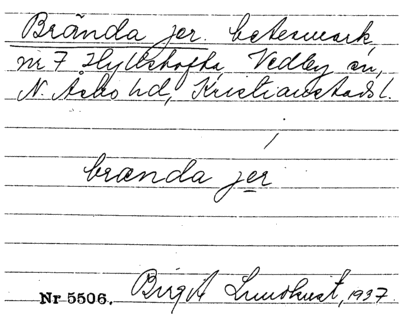 Brända jer. betesmark
nr 7 Hyllstofta, Vedby sn,
N. Åsbo hd, Kristianstads l.
brænda jer
Nr 5506. Birgit Lundkvist, 1937.